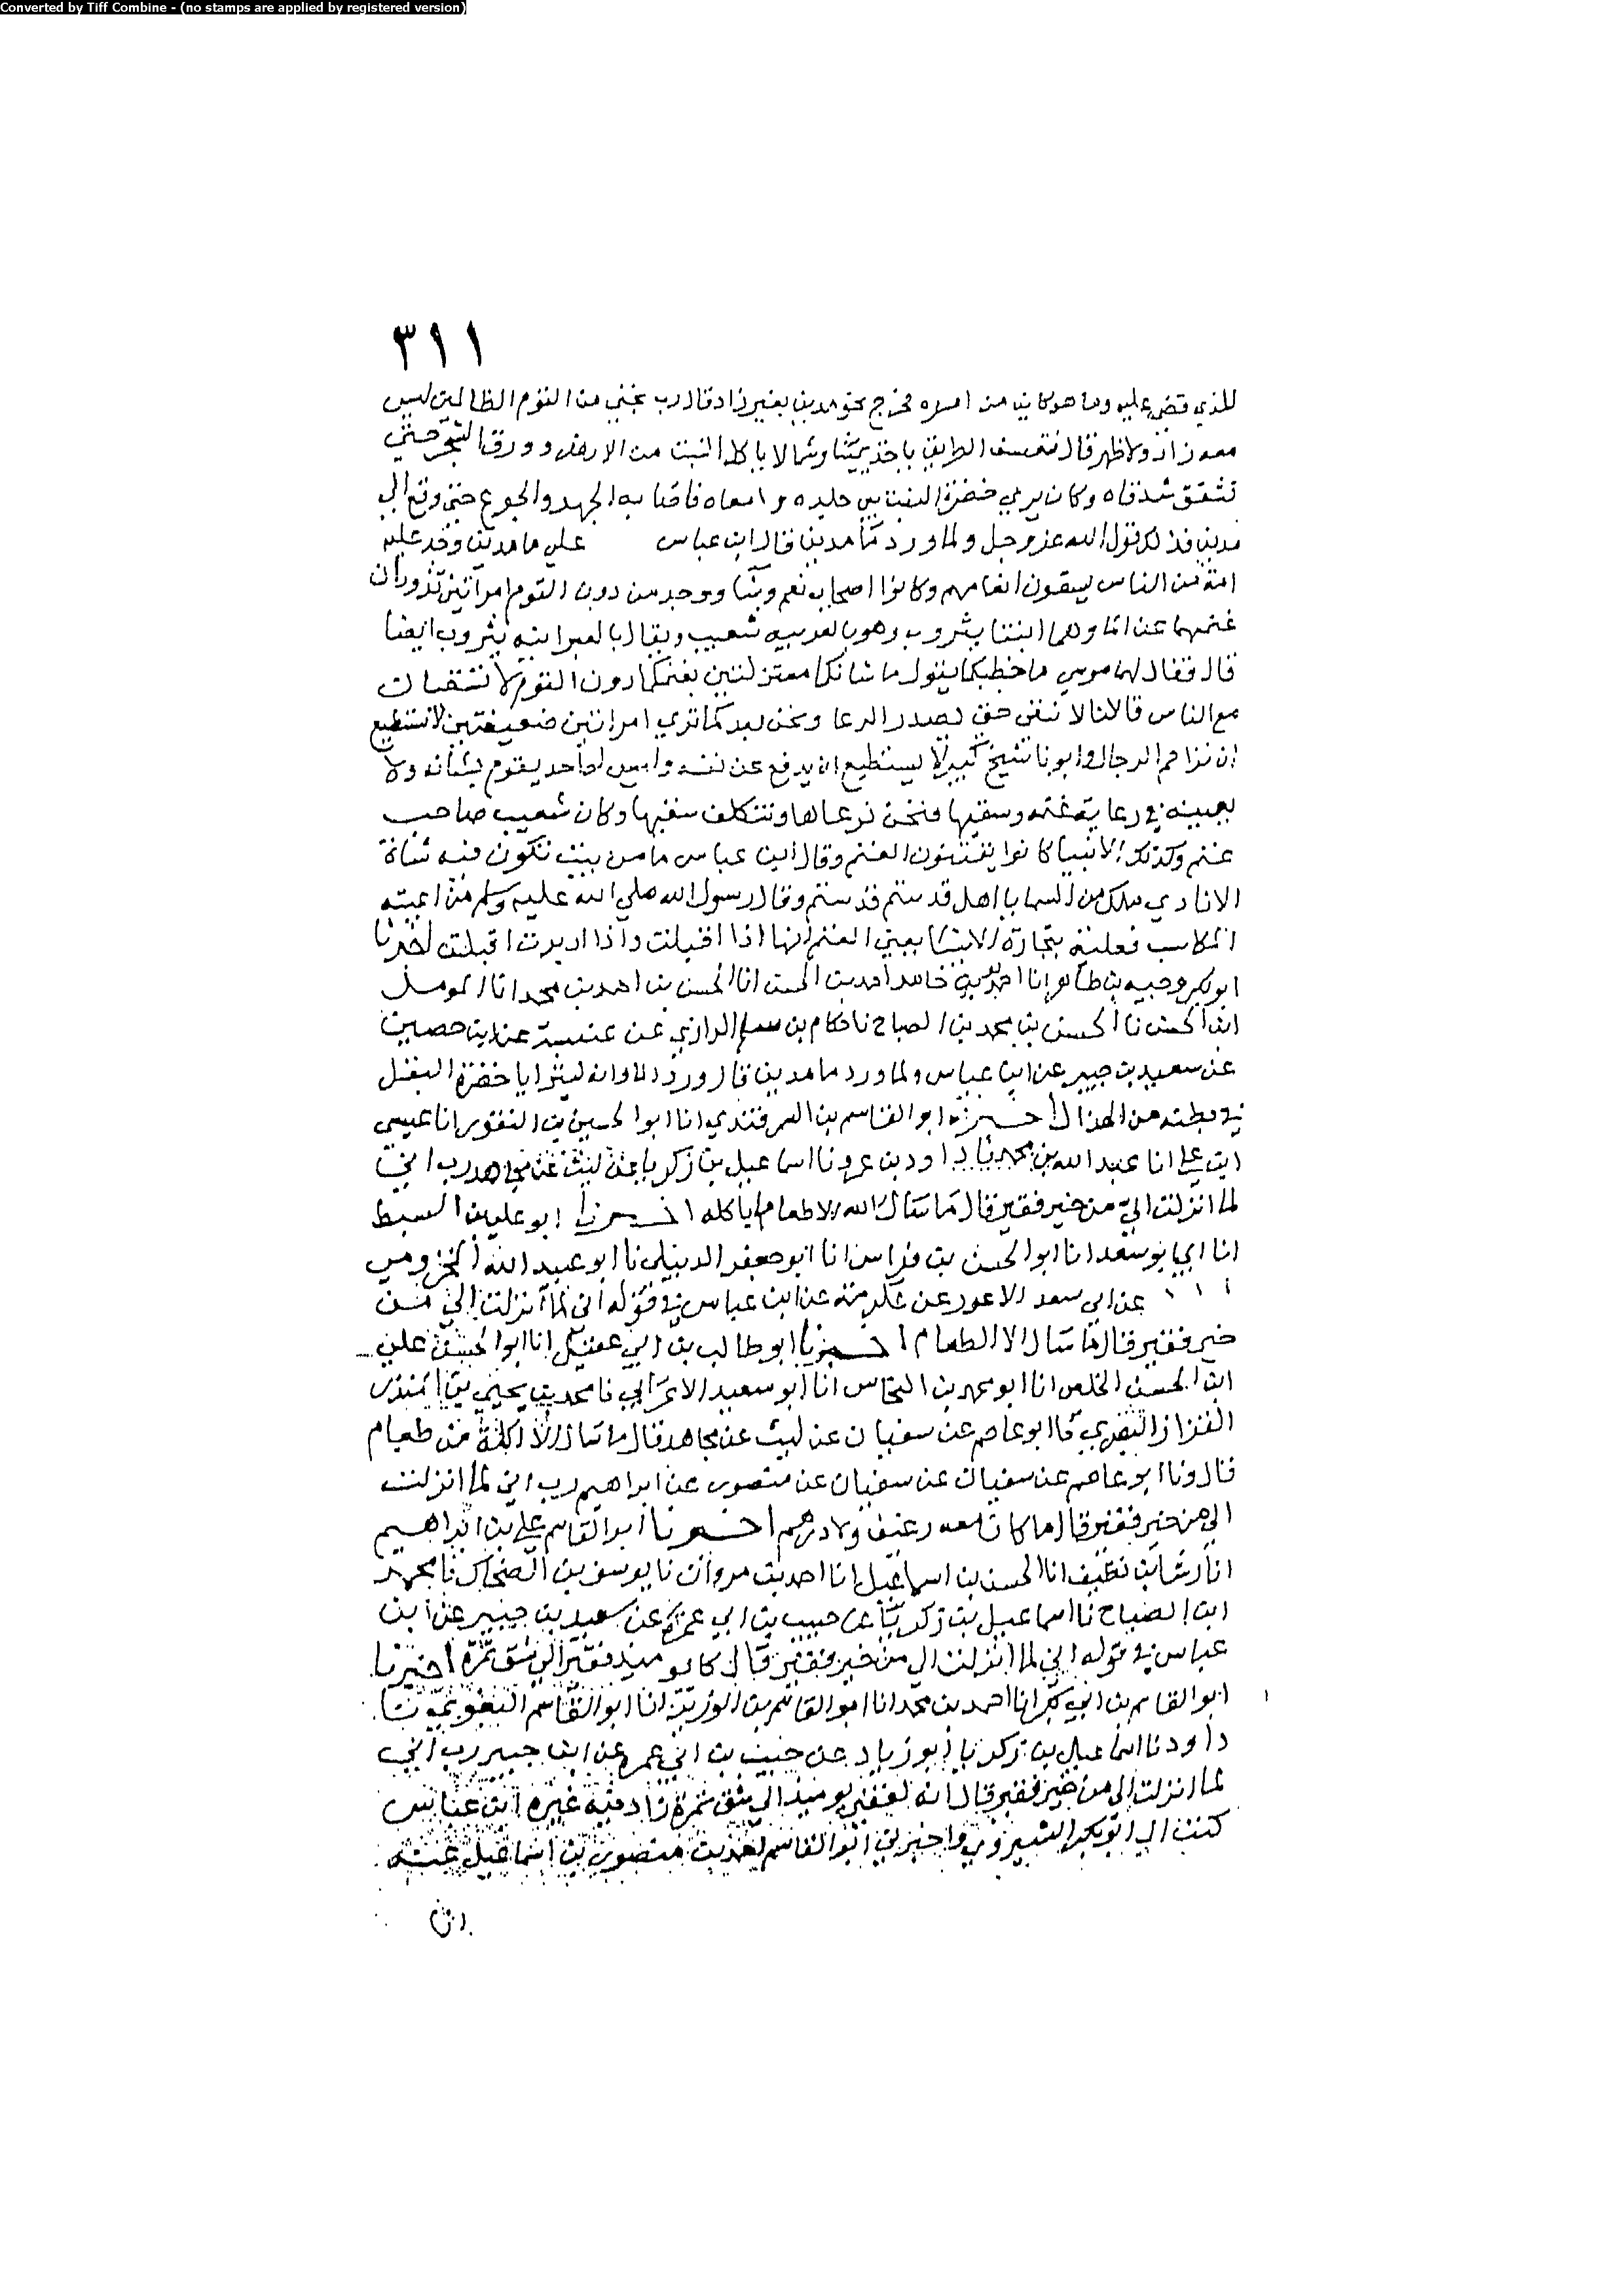 Converted by Tiff Combine - (no stamps are applied by registered version)
٣١١
للذي قضي عليه وما هو كاين من امره فخرج نحو مدين بغير زاد وقال رب نجني من القوم الظالمين ليس
معه زاد ولا ظهر قال فتعسف الطريق ياخذ يمينا وشمالا ياكل النبت من الارض وورق الشجر حتي
تشقق شدقاه وكان يري خضرة النبت بين جلده وامعاه فاصابه الجهد والجوع حتي وقع الي
مدين فذلك قول الله عز وجل ولما ورد ما مدين قال ابن عباس علي ما مدين وجد عليه
امة من الناس يسقون انعامهم وكانوا اصحاب نعم وشا ووجد من دون القوم امراتين تذودان
غنمهما عن الما وهما ابنتا يثروب وهو بالعربيه شعيب ويقال بالعبرانيه يثروب ايضا
قال فقال لهما موسي ما خطبكما يقول ما شانكما معتزلتين بغنمكما دون القوم لا تسقيان
مع الناس قالتا لا نسقي حتي يصدر الرعا ونحن بعد كما تري امراتين ضعيفتين لا نستطيع
ان نزاحم الرجال وابونا شيخ كبير لا يستطيع ان يدفع عن نفسه وليس له احد يقوم بشانه ولا
يعينه في رعاية غنمه وسقيها فنحن نرعاها ونتكلف سقيها وكان شعيب صاحب
غنم وكذلك الانبيا كانوا يقتنون الغنم وقال ابن عباس ما من بيت تكون فيه شاة
الا نادي ملك من السما يا اهل قدستم قدستم وقال رسول الله صلي الله عليه وسلم من اعيته
المكاسب فعليه بتجارة الانبيا يعني الغنم انها اذا اقبلت واذا ادبرت اقبلت اخبرنا
ابو بكر وجيه بن طاهر انا احمد بن الحسن انا الحسن بن احمد بن محمد انا المومل
ابن الحسن نا الحسن بن محمد بن الصباح نا حكام بن سلم الرازي عن عنبسة عن ابن حصين
عن سعيد بن جبير عن ابن عباس ولما ورد ما مدين قال ورد الما وانه ليترايا خضرة البقل
في بطنه من الهزال اخبرنا ابو القاسم بن السمرقندي انا ابو الحسين بن النقور انا عيسي
ابن علي انا عبد الله بن محمد نا داود بن عمرو نا اسماعيل بن زكريا عن ليث عن مجاهد رب اني
لما انزلت الي من خير فقير قال ما سال الله الا طعام ياكله اخبرنا ابو علي بن السبط
انا ابي ابو سعد انا ابو الحسن بن فراس انا ابو جعفر الديبلي نا ابو عبيد الله المخزومي
عن ابي سعد الاعور عن عكرمة عن ابن عباس في قوله اني لما انزلت الي من
خير فقير قال ما سال الا الطعام اخبرنا ابو طالب بن ابي عقيل انا ابو الحسن علي
ابن الحسن الخلعي انا ابو محمد بن النحاس انا ابو سعيد الاعرابي نا محمد بن يحيي بن المنذر
القزاز البصري نا ابو عاصم عن سفيان عن ليث عن مجاهد قال ما سال الا اكلة من طعام
قال ونا ابو عاصم عن سفيان عن سفيان عن منصور عن ابراهيم رب اني لما انزلت
الي من خير فقير قال ما كان معه رغيف ولا درهم اخبرنا ابو القاسم علي بن ابراهيم
انا رشا بن نظيف انا الحسن بن اسماعيل انا احمد بن مروان نا يوسف بن الضحاك نا محمد
ابن الصباح نا اسماعيل بن زكريا عن حبيب بن ابي عمرة عن سعيد بن جبير عن ابن
عباس في قوله اني لما انزلت الي من خير فقير قال كان يوميذ فقير الي شق تمرة اخبرنا
ابو القاسم بن ابي بكر انا احمد بن محمد انا ابو القاسم بن الوزير انا ابو القاسم البغوي نا
داود نا اسماعيل بن زكريا ابو زياد عن حبيب بن ابي عمرة عن ابن جبير رب اني
لما انزلت الي من خير فقير قال انه لفقير يوميذ الي شق تمرة زاد فيه غيره ابن عباس
كتب الي ابو بكر الشيروي واخبرني ابو القاسم احمد بن منصور بن اسماعيل عنه